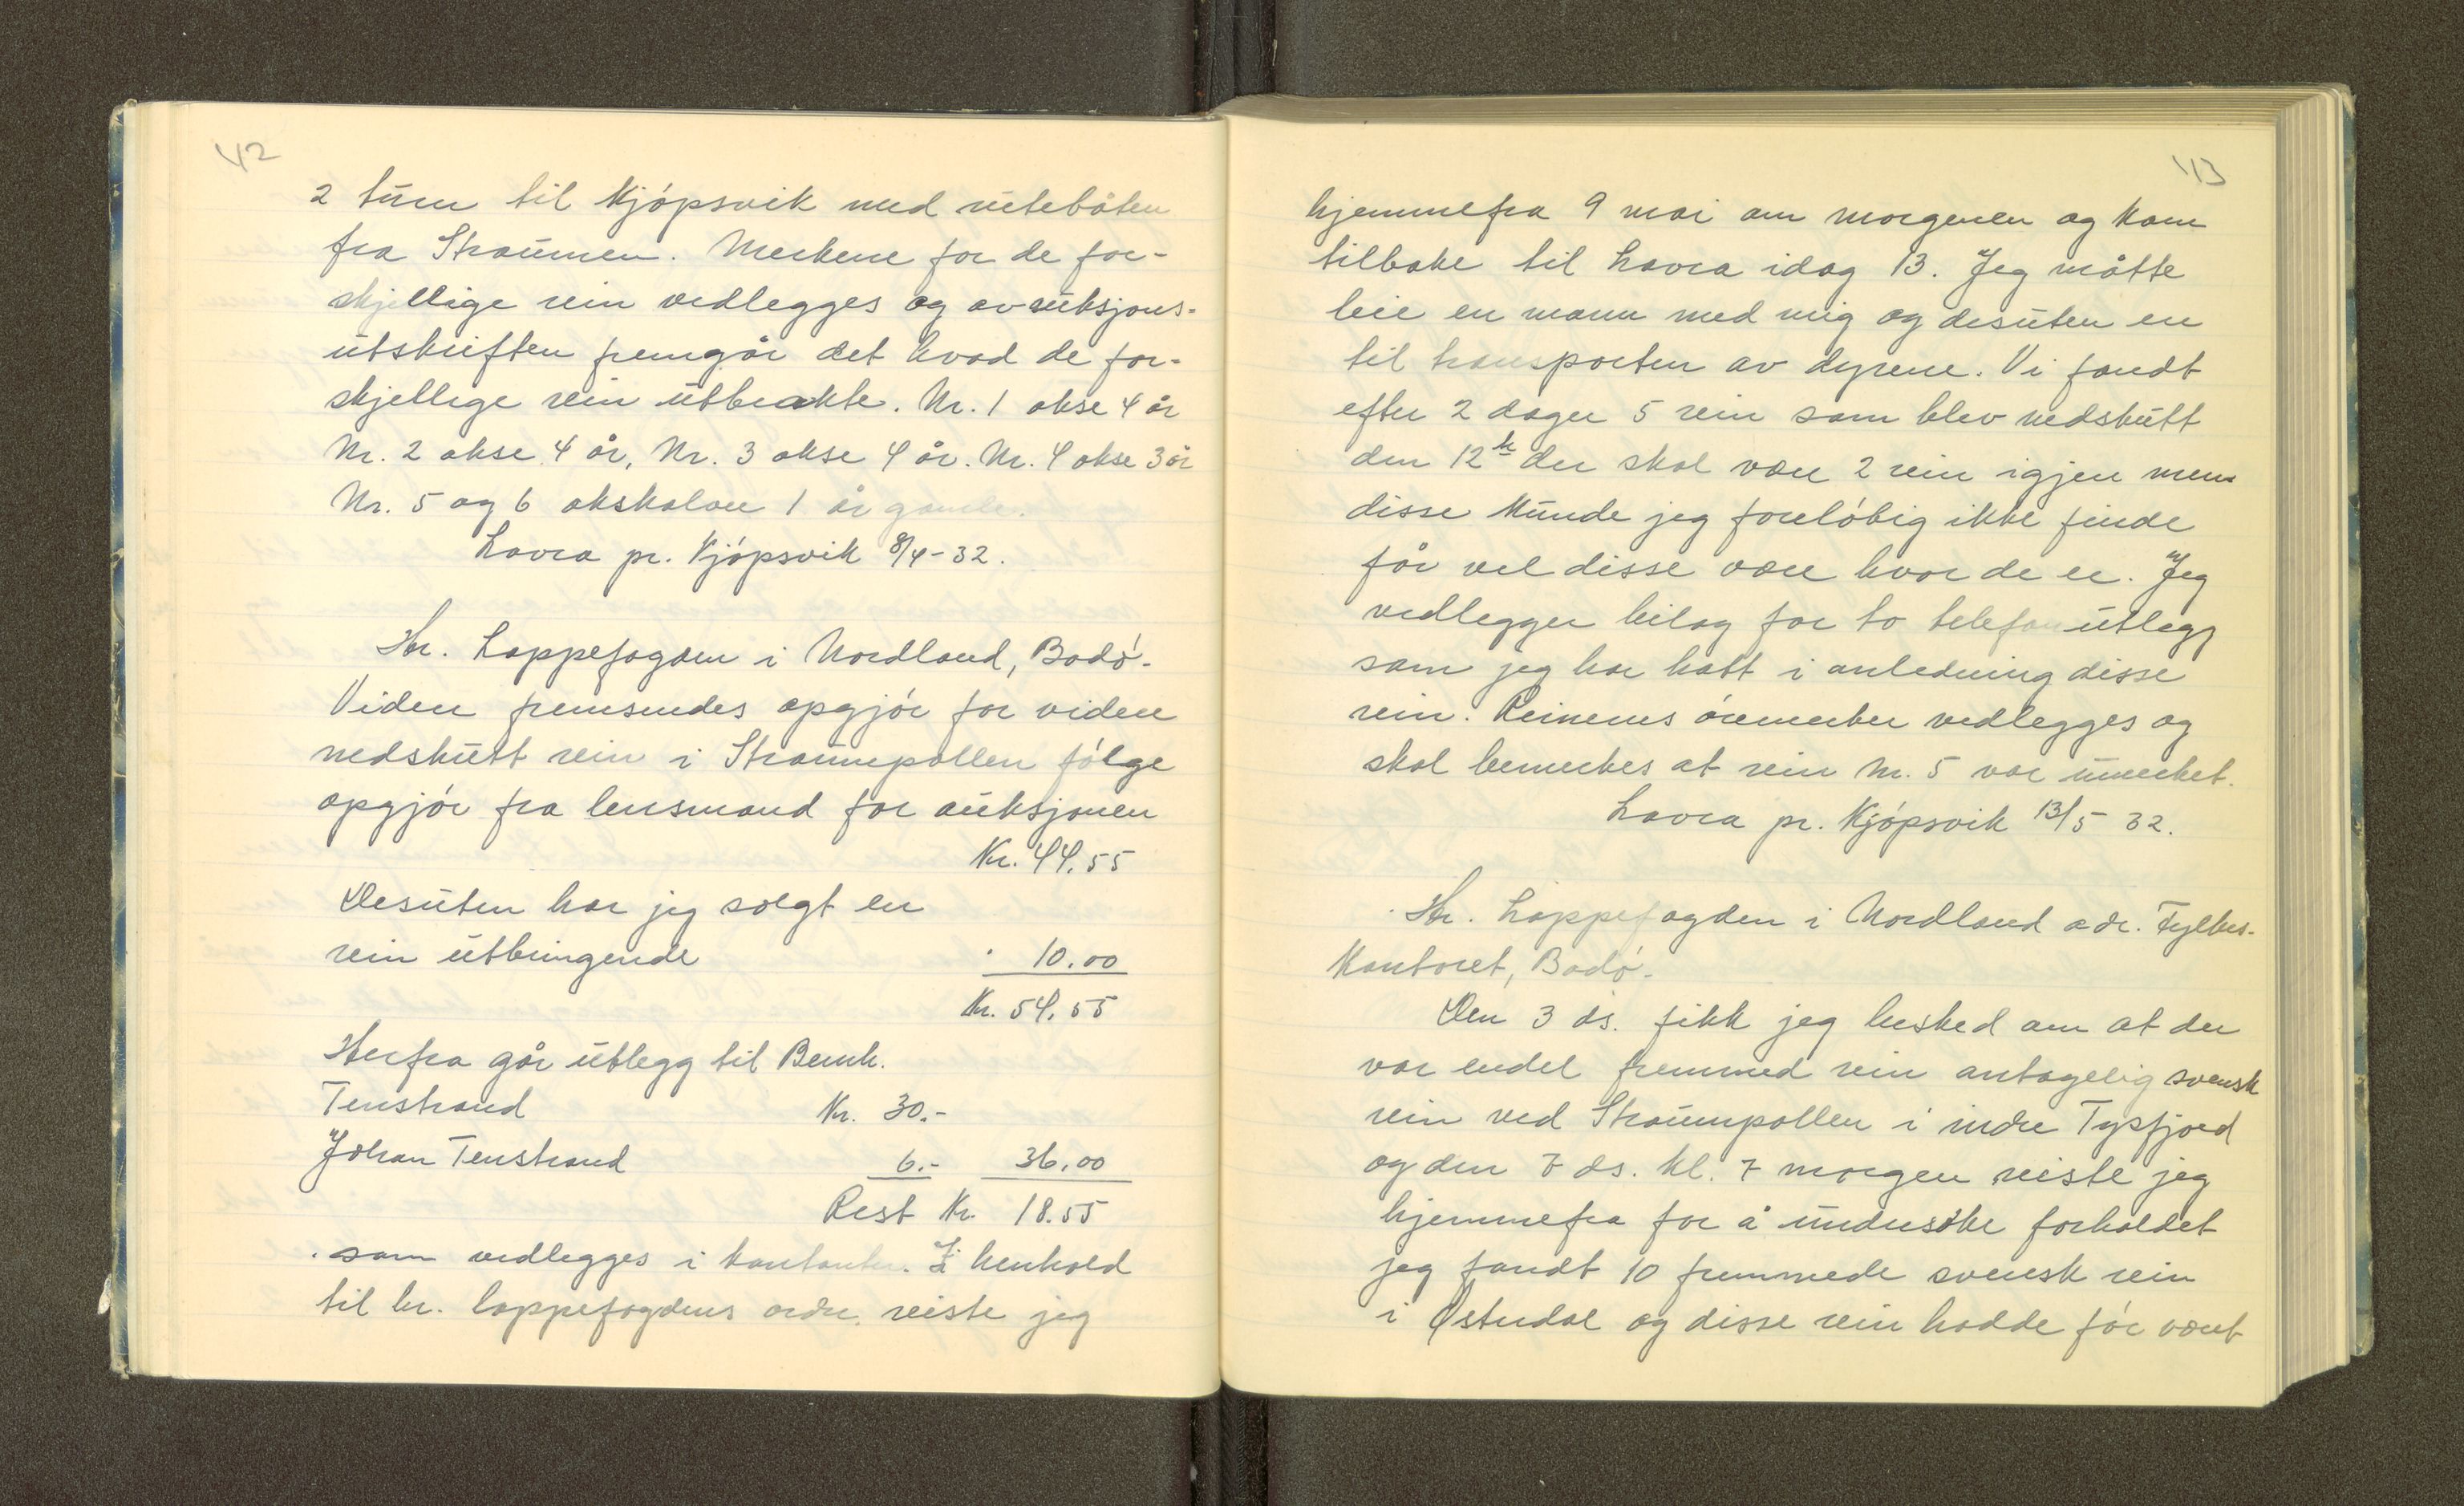 42
2 turer til Kjöpsvik med rutebåten
fra Straumen. Merkene for de for-
skjellige rein vedlegges og av auksjons-
utskriften fremgår det hvad de for-
skjellige rein utbrakte. Nr. 1 okse 4 år
Nr. 2 okse 4 år, Nr. 3 okse 4 år. Nr. 4 okse 3 år
Nr. 5 og 6 okskalver 1 år gamle.
Lavra pr. Kjöpsvik 8/4-32.
Hr. Lappefogden i Nordland, Bodö.
Viden fremsendes opgjör for videre
nedskutt rein i Straumpollen fölge
opgjör fra lensmand for auksjonen
Kr. 44.55
Desuten har jeg solgt en
rein utbringende " 10.00
Kr. 54.55
Herfra går utlegg til Bernh.
Tenstrand Kr. 30.-
Johan Tenstrand 6.- 36.00
Rest Kr. 18.55
som vedlegges i kontanter. I henhold
til hr. lappefogdens ordre reiste jeg
43
hjemmefra 9 mai om morgenen og kom
tilbake til Lavra idag 13. Jeg måtte
leie en mann med mig og desuten en
til transporten av dyrene. Vi fandt
efter 2 dager 5 rein som blev nedskutt
den 12te der skal være 2 rein igjen men
disse kunde jeg forelöbig ikke finde
får vel disse være hvor de er. Jeg
vedlegger bilag for to telefonutlegg
som jeg har hatt i anledning disse
rein. Reinenes öremerker vedlegges og
skal bemerkes at rein Nr. 5 var umerket.
Lavra pr. Kjöpsvik 13/5 32.
Hr. Lappefogden i Nordland adr. Fylkes-
kontoret, Bodö.
Den 3 ds. fikk jeg besked om at der
var endel fremmed rein antagelig svensk
rein ved Straumpollen i indre Tysfjord
og den 7 ds. kl. 7 morgen reiste jeg
hjemmefra for å undersöke forholdet
jeg fandt 10 fremmede svensk rein
i Østerdal og disse rein hadde för vært